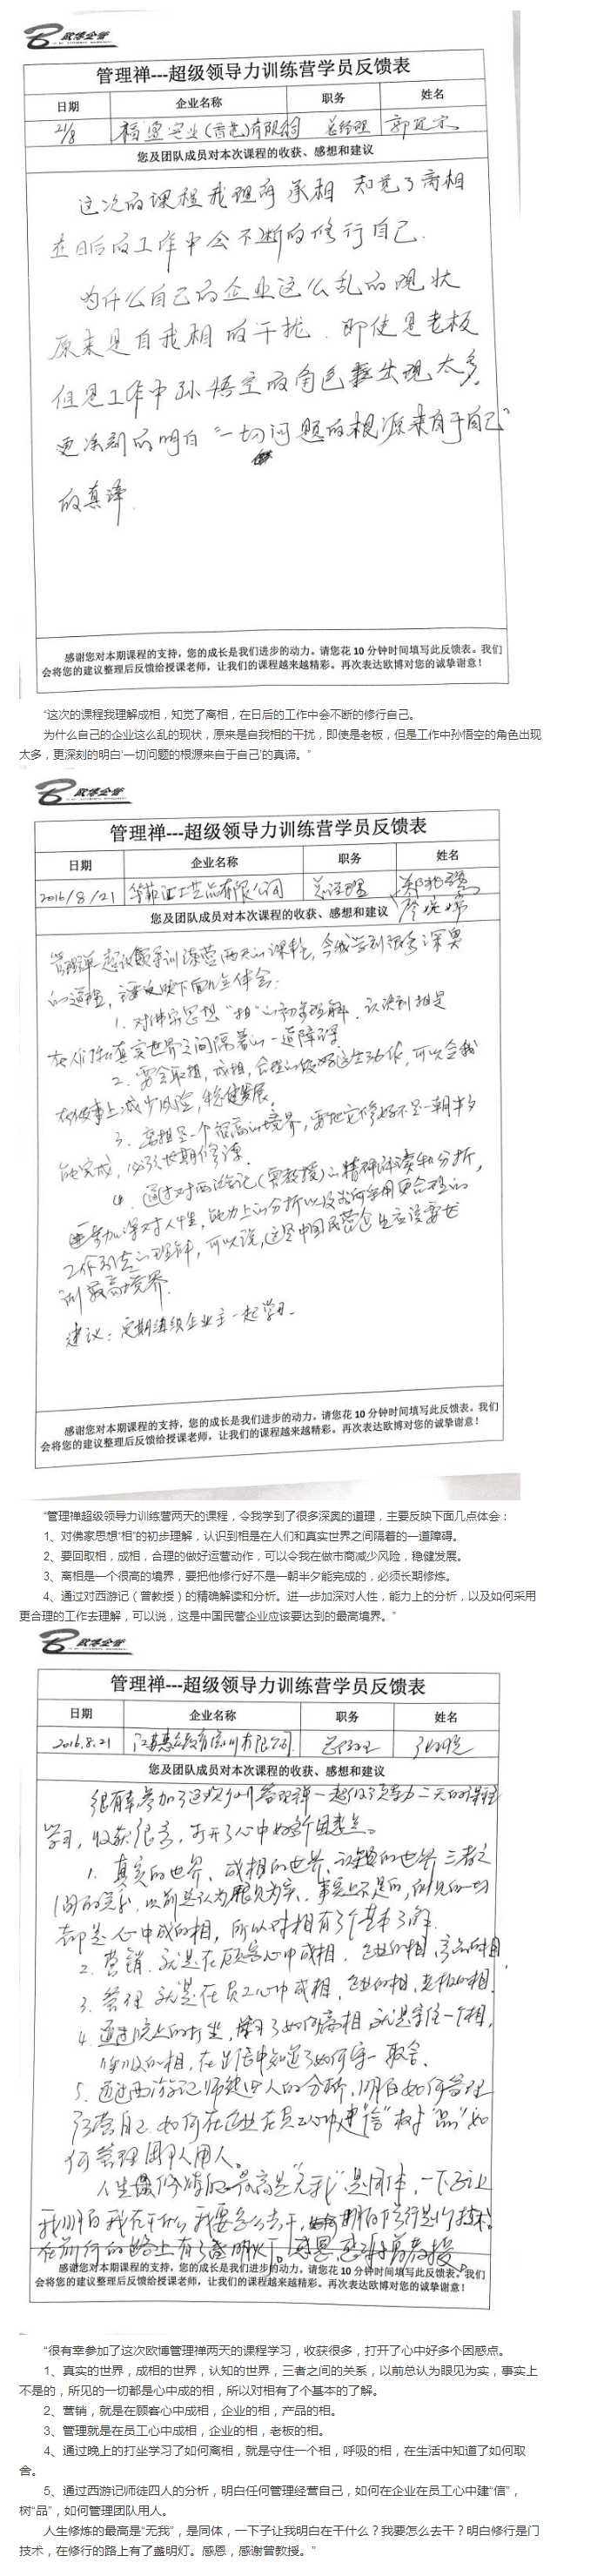 欧博企管
管理禅---超级领导力训练营学员反馈表
日期 企业名称 职务 姓名
21/8 福 实业(香港)有限公司 总经理 郭
您及团队成员对本次课程的收获、感想和建议
这次的课程我理解承相 知觉了离相
在日后的工作中会不断的修行自己.
为什么自己的企业这么乱的现状
原来是自我相的干扰.即使是老板
但是工作中孙悟空的角色出现太多。
更深刻的明白“一切问题的根源来自于自己”
的真谛.
感谢您对本期课程的支持，您的成长是我们进步的动力。请您花10分钟时间填写此反馈表。我们
会将您的建议整理后反馈给授课老师，让我们的课程越来越精彩。再次表达欧博对您的诚挚谢意！
“这次的课程我理解成相，知觉了离相，在日后的工作中会不断的修行自己。
为什么自己的企业这么乱的现状，原来是自我相的干扰，即使是老板，但是工作中孙悟空的角色出现
太多，更深刻的明白‘一切问题的根源来自于自己’的真谛。”
欧博企管
管理禅---超级领导力训练营学员反馈表
日期 企业名称 职务 姓名
2016/8/21 工艺品有限公司 总经理
您及团队成员对本次课程的收获、感想和建议
管理禅超级领导训练营两天的课程，令我学到很多深奥
的道理，主要反映下面几点体会：
1. 对佛家思想“相”的初步理解，认识到相是
在人们和真实世界之间隔着的一道障碍.
2. 要会取相，成相，合理的做好运营动作，可以令我
在做事上减少风险，稳健发展.
3. 离相是一个很高的境界，要把它修好不是一朝半夕
能完成，必须长期修炼.
4. 通过对西游记(曾教授)的精辟解读和分析，
进一步加深对人性，能力上的分析以及如何采用更合理的
工作引去的理解，可以说，这是中国民营企业应该要达
到最高境界.
建议：定期组织企业主一起学习.
感谢您对本期课程的支持，您的成长是我们进步的动力。请您花10分钟时间填写此反馈表。我们
会将您的建议整理后反馈给授课老师，让我们的课程越来越精彩。再次表达欧博对您的诚挚谢意！
“管理禅超级领导力训练营两天的课程，令我学到了很多深奥的道理，主要反映下面几点体会：
1、对佛家思想“相”的初步理解，认识到相是在人们和真实世界之间隔着的一道障碍。
2、要回取相，成相，合理的做好运营动作，可以令我在做市商减少风险，稳健发展。
3、离相是一个很高的境界，要把他修行好不是一朝半夕能完成的，必须长期修炼。
4、通过对西游记（曾教授）的精确解读和分析。进一步加深对人性，能力上的分析，以及如何采用
更合理的工作去理解，可以说，这是中国民营企业应该要达到的最高境界。”
欧博企管
管理禅---超级领导力训练营学员反馈表
日期 企业名称 职务 姓名
2016.8.21 有限公司 总经理
您及团队成员对本次课程的收获、感想和建议
很有幸参加了这次 管理禅－超级领导力二天的课程
学习，收获很多，打开了心中好多个困惑点。
1. 真实的世界、成相的世界、认知的世界 三者之
间的关系，以前总认为眼见为实，事实上不是的，所见的一切
都是心中成的相，所以对相有了个基本了解.
2. 营销，就是在顾客心中成相，企业的相，产品的相.
3. 管理 就是在员工心中成相，企业的相，老板的相.
4. 通过晚上的打坐，学习了如何离相，就是守住一个相，
呼吸的相，在生活中知道了如何守一 取舍.
5. 通过西游记师徒四人的分析，明白如何管理
经营自己 如何在企业在员工心中建“信” 树“品” 如
何管理团队用人。
人生最修炼的最高是“无我” 是同体，一下子让
我明白我在干什么 我要怎么去干，明白修行是门技术。
在前行的路上有了盏明灯。感恩 感谢曾教授。
感谢您对本期课程的支持，您的成长是我们进步的动力。请您花10分钟时间填写此反馈表。我们
会将您的建议整理后反馈给授课老师，让我们的课程越来越精彩。再次表达欧博对您的诚挚谢意！
“很有幸参加了这次欧博管理禅两天的课程学习，收获很多，打开了心中好多个困惑点。
1、真实的世界，成相的世界，认知的世界，三者之间的关系，以前总认为眼见为实，事实上
不是的，所见的一切都是心中成的相，所以对相有了个基本的了解。
2、营销，就是在顾客心中成相，企业的相，产品的相。
3、管理就是在员工心中成相，企业的相，老板的相。
4、通过晚上的打坐学习了如何离相，就是守住一个相，呼吸的相，在生活中知道了如何取
舍。
5、通过西游记师徒四人的分析，明白任何管理经营自己，如何在企业在员工心中建“信”，
树“品”，如何管理团队用人。
人生修炼的最高是“无我”，是同体，一下子让我明白在干什么？我要怎么去干？明白修行是门
技术，在修行的路上有了盏明灯。感恩，感谢曾教授。”